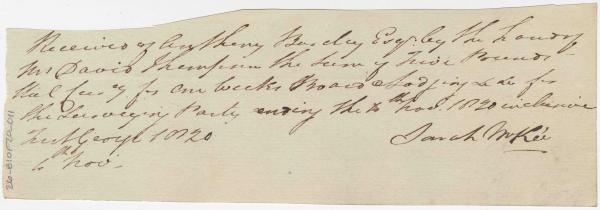 Received of Anthony Barclay Esqr. by the hands of
Mr David Thompson the sum of Five Pounds
Hal Curcy for one weeks Board & Lodging &c &c for
the Surveying Party ending the 6th Novr. 1820 inclusive
Fort George 1820
6th Novr.
Sarah McKee